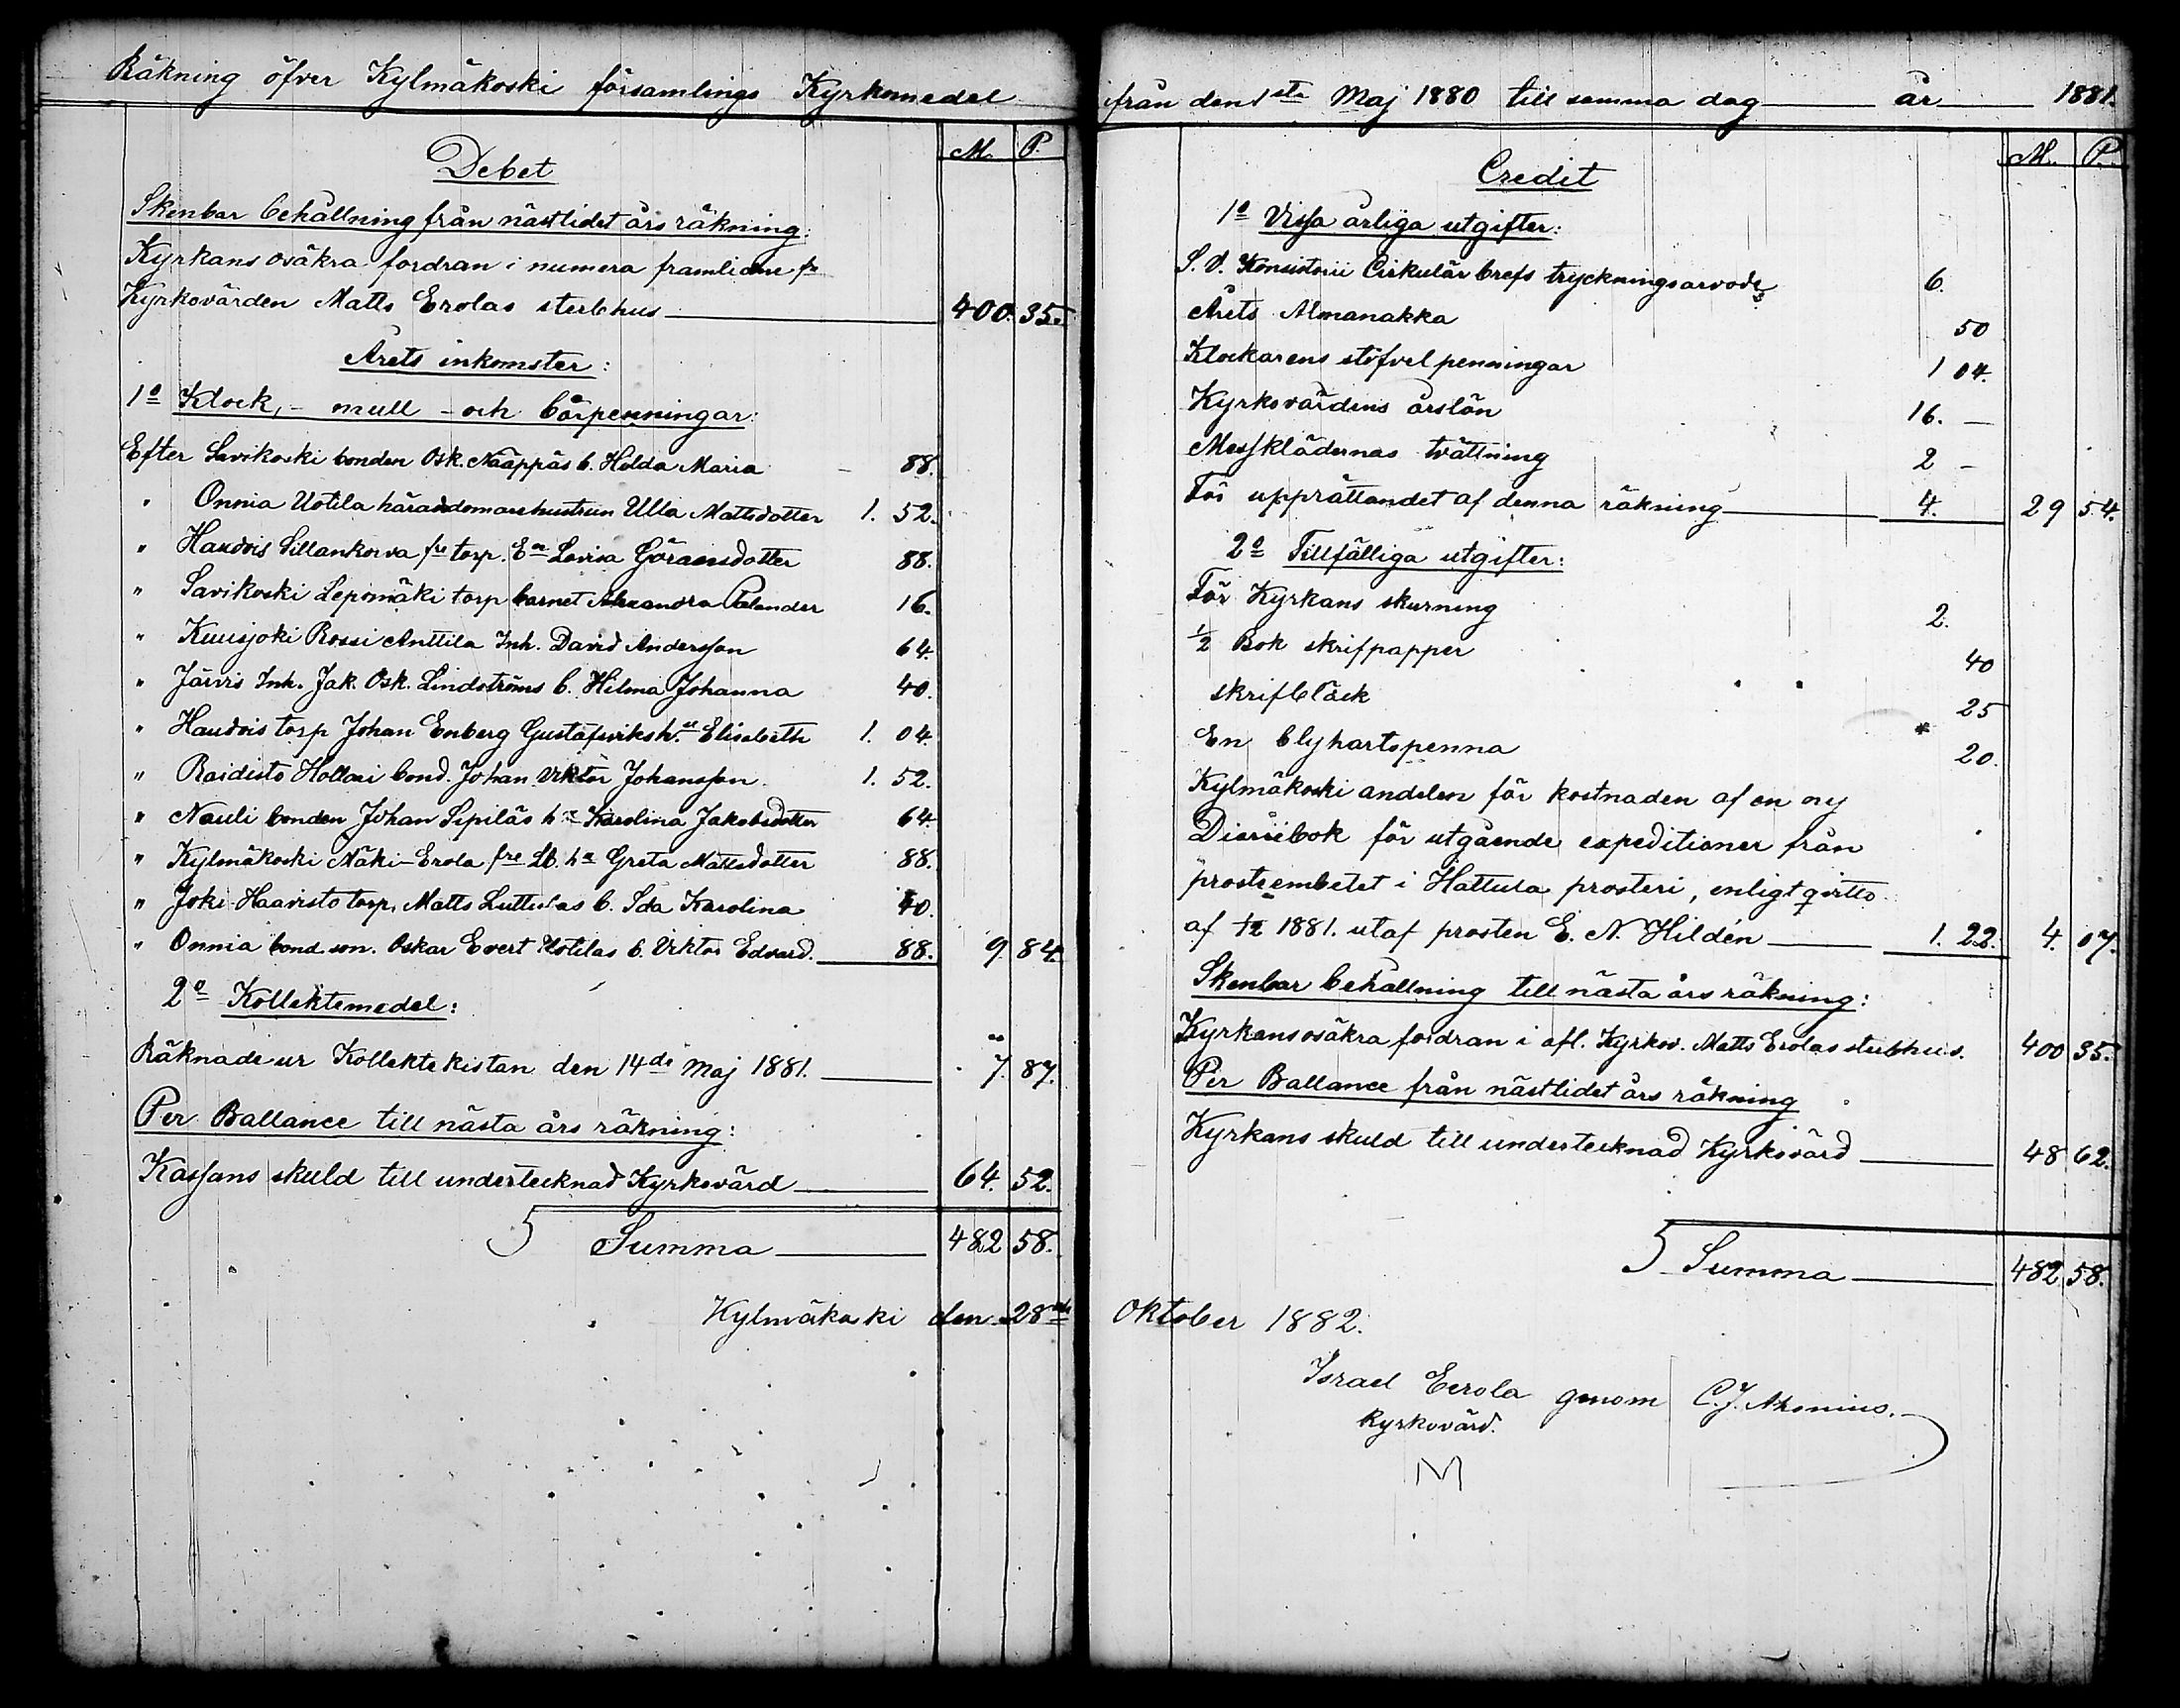 Räkning öfver Kylmäkoski församlings Kyrkomedel från den 1sta Maj 1880 till samma dag år 1881.
M. P.
Debet
Skenbar behållning från nästlidet års räkning:
Kyrkans osäkra fordran i numera framlidne fr
Kyrkovärden Matts Erolas sterbhus 400. 35.
Årets inkomster:
1o Klock,- mull- och bårpenningar:
Efter Savikoski bonden Osk. Nääppäs b. Hilda Maria 88.
" Onnia Uotila häradsdomarehustrun Ulla Mattsdotter 1. 52.
" Haudois Sillankorva fre torp. En Lovisa Göransdotter 88.
" Savikoski Lepomäki torp barnet Alexandra Palander 16.
" Kuusjoki Rossi Anttila Inh. David Andersson 64.
" Järvis Inh. Jak. Osk. Lindströms b. Hilma Johanna 40.
" Haudois torp Johan Enberg Gustafsviks h. Elisabeth 1. 04.
" Raidisto Hollari bond. Johan Viktor Johansson 1. 52.
" Nauli bonden Johan Sipiläs h. Karolina Jakobsdotter 64.
" Kylmäkoski Näki-Erola fre Lb. ha Greta Mattsdotter 88.
" Joki-Haavisto torp. Matts b. Ida Karolina 40.
" Onnia bond. son. Oskar Evert Uotilas b. Viktor Edvard. 88. 9. 84.
2o Kollektemedel:
Räknade ur Kollektekistan den 14de Maj 1881. 7. 87.
Per Ballance till nästa års räkning:
Kassans skuld till undertecknad Kyrkovärd 64. 52.
Summa 482 58.
Kylmäkoski den 28de
M. P.
Credit
1o Vissa årliga utgifter:
S. V. Konsistorii Cirkulär brefs tryckningsarvode 6.
Årets Almanakka 50
Klockarens stöfvelpenningar 1 04.
Kyrkovärdens årslön 16. —
Messklädernas tvättning 2 -
För upprättandet af denna räkning 4. 29 54.
2o Tillfälliga utgifter:
För Kyrkans skurning 2.
1/2 Bok skrifpapper 40
skrifbläck 25
En blyhartspenna 20.
Kylmäkoski andelen för kostnaden af en ny
Diariibok för utgående expeditioner från
prostembetet i Hattula prosteri, enligt qvitto
af 1881. utaf prosten E. N. Hildén 1. 22. 4. 07.
Skenbar behållning till nästa års räkning:
Kyrkans osäkra fordran i afl. Kyrkov. Matts Erolas sterbhus. 400 35.
Per Ballance från nästlidet års räkning
Kyrkans skuld till undertecknad Kyrkovärd 48 62.
Summa 482 58.
Oktober 1882.
Israel Eerola genom C. J. Ahonius.
Kyrkovärd.